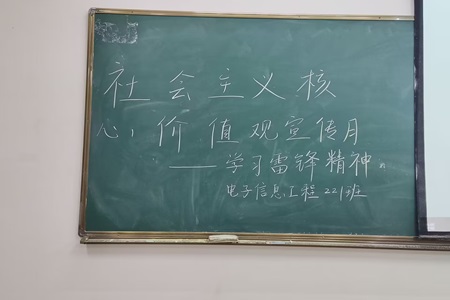 社会主义核
心价值观宣传月
——学习雷锋精神
电子信息工程221班